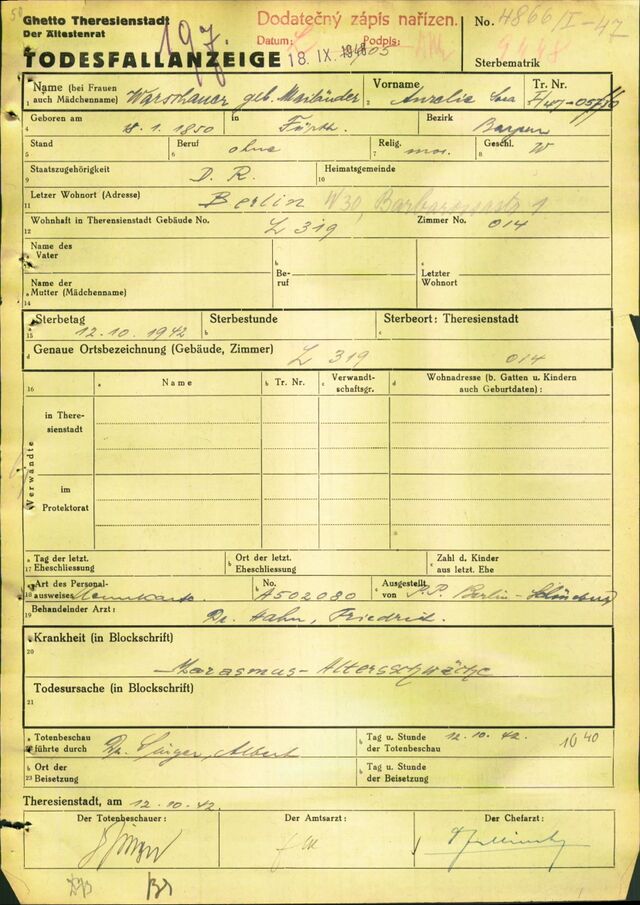 Ghetto Theresienstadt
Der Ältestenrat
TODESFALLANZEIGE
197.
Dodatečný zápis nařízen.
Datum: Podpis:
18. IX. 1948
No. 4866/I-47
9448
Sterbematrik
Name (bei Frauen auch Mädchenname) Warschauer geb. Mailänder Vorname Aurelie Tr. Nr.
Geboren am 1. 1850 in Fürth. Bezirk Bayern
Stand Beruf ohne Relig. mos. Geschl. W
Staatszugehörigkeit D. R. Heimatsgemeinde
Letzer Wohnort (Adresse) Berlin W30, 1
Wohnhaft in Theresienstadt Gebäude No. L 319 Zimmer No. 014
Name des Vater
Beruf
Letzter Wohnort
Name der Mutter (Mädchenname)
Sterbetag 12.10.1942 Sterbestunde Sterbeort: Theresienstadt
Genaue Ortsbezeichnung (Gebäude, Zimmer) L 319 014
Name Tr. Nr. Verwandtschaftsgr. Wohnadresse (b. Gatten u. Kindern auch Geburtdaten):
Verwandte
in Theresienstadt
im Protektorat
Tag der letzt. Eheschliessung Ort der letzt. Eheschliessung Zahl d. Kinder aus letzt. Ehe
Art des Personalausweises Kennkarte No. A502080 Ausgestellt von P.P. Berlin-
Behandelnder Arzt: Dr. Hahn, Friedrich.
Krankheit (in Blockschrift)
Marasmus - Altersschwäche
Todesursache (in Blockschrift)
Totenbeschau führte durch Dr. Albert Tag u. Stunde der Totenbeschau 12.10.42. 10 40
Ort der Beisetzung Tag u. Stunde der Beisetzung
Theresienstadt, am 12.10.42.
Der Totenbeschauer: Der Amtsarzt: Der Chefarzt: